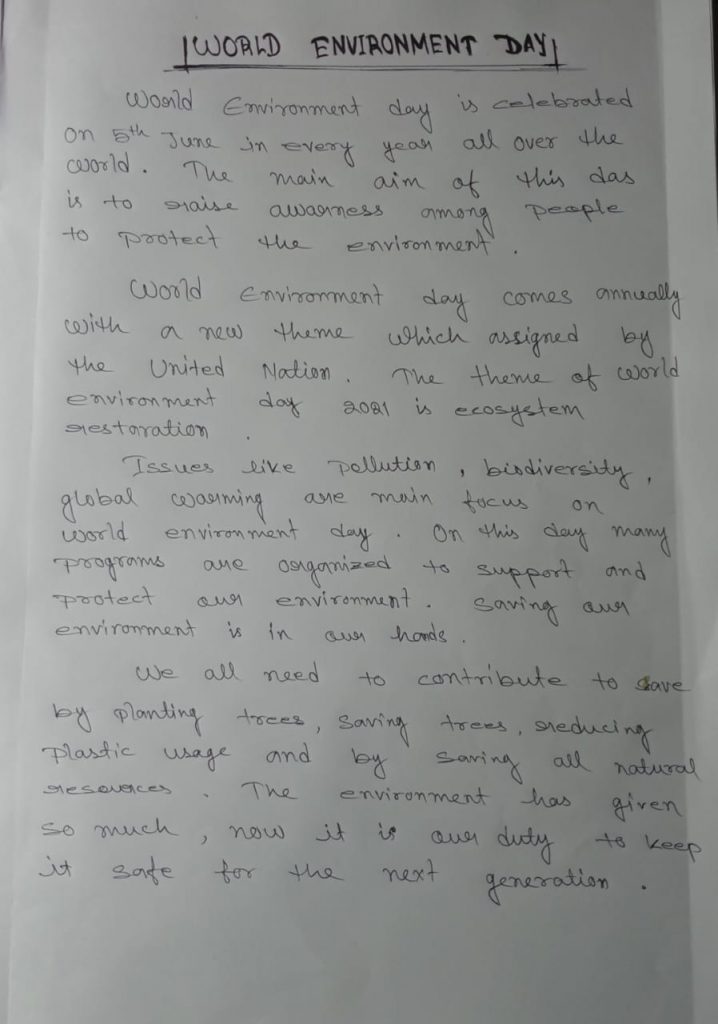 WORLD ENVIRONMENT DAY
World Environment day is celebrated
on 5th June in every year all over the
world. The main aim of this das
is to raise awarness among people
to protect the environment.
World Environment day comes annually
with a new theme which assigned by
the United Nation. The theme of world
environment day 2021 is ecosystem
restoration.
Issues like Pollution, biodiversity,
global warming are main focus on
world environment day. On this day many
programs are organized to support and
protect our environment. Saving our
environment is in our hands.
We all need to contribute to save
by planting trees, saving trees, reducing
plastic usage and by saving all natural
resources. The environment has given
so much, now it is our duty to keep
it safe for the next generation.